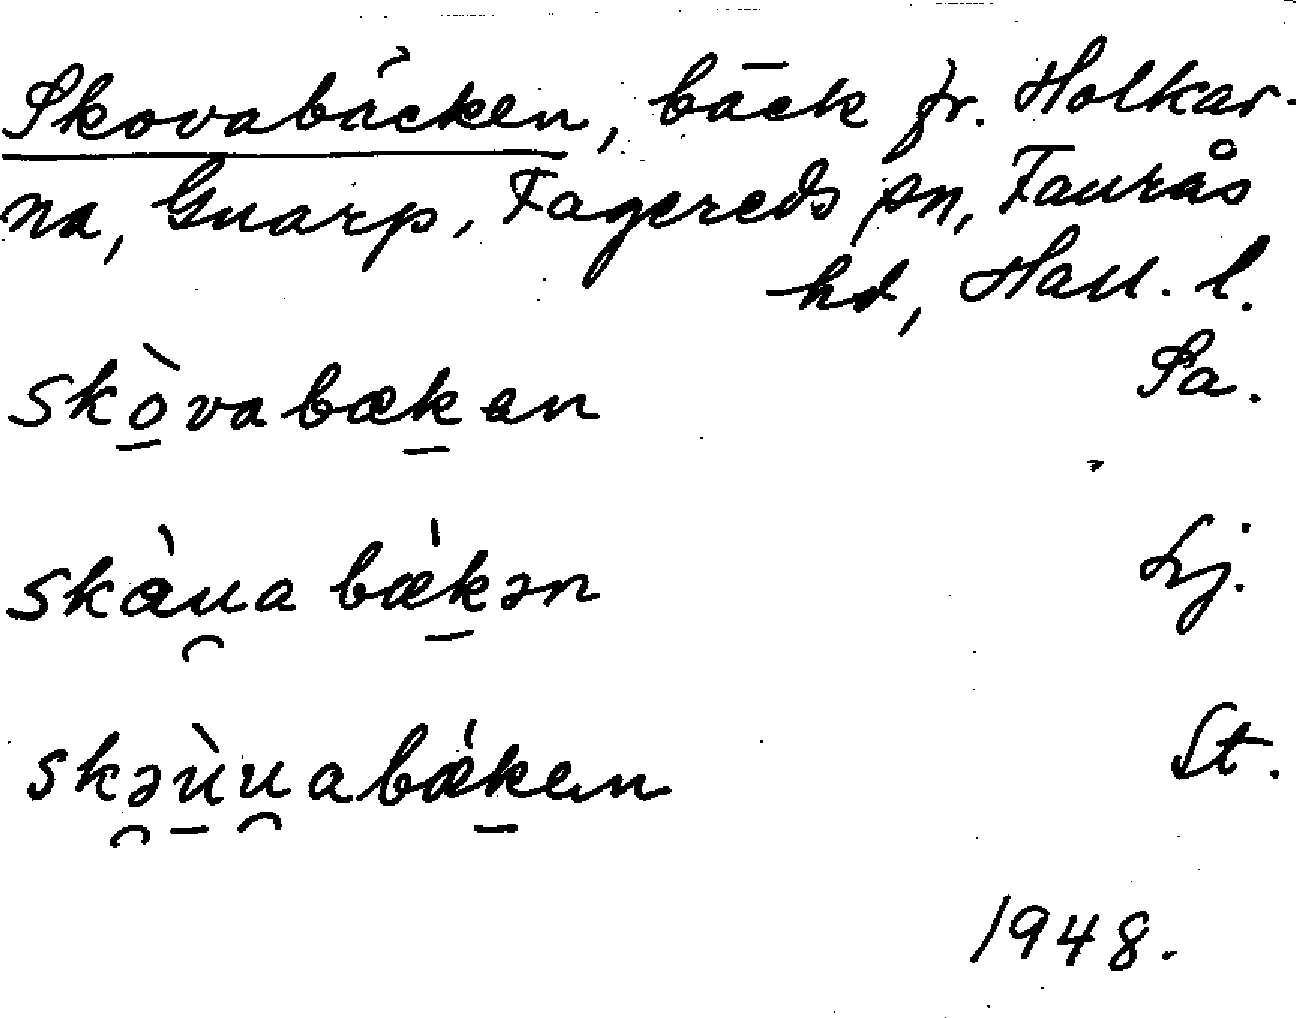 Skovabäcken, bäck fr. Holkar-
na, Gnarp, Fagereds sn, Faurås
hd, Hall. l.
skòvabækan Pa.
skàu̯abæ̀kən Lj.
skə̯ùu̯abǽken St.
1948.